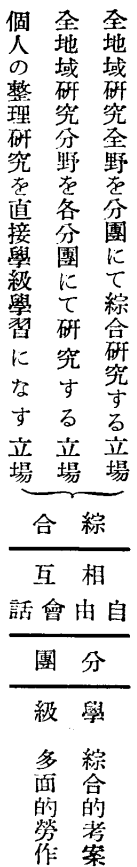 全地域研究全野を分團にて綜合研究する立場
全地域研究分野を各分團にて研究する立場
個人の整理研究を直接學級學習になす立場
綜合
相互
自由會話
分團
學級
綜合的考案
多面的勞作